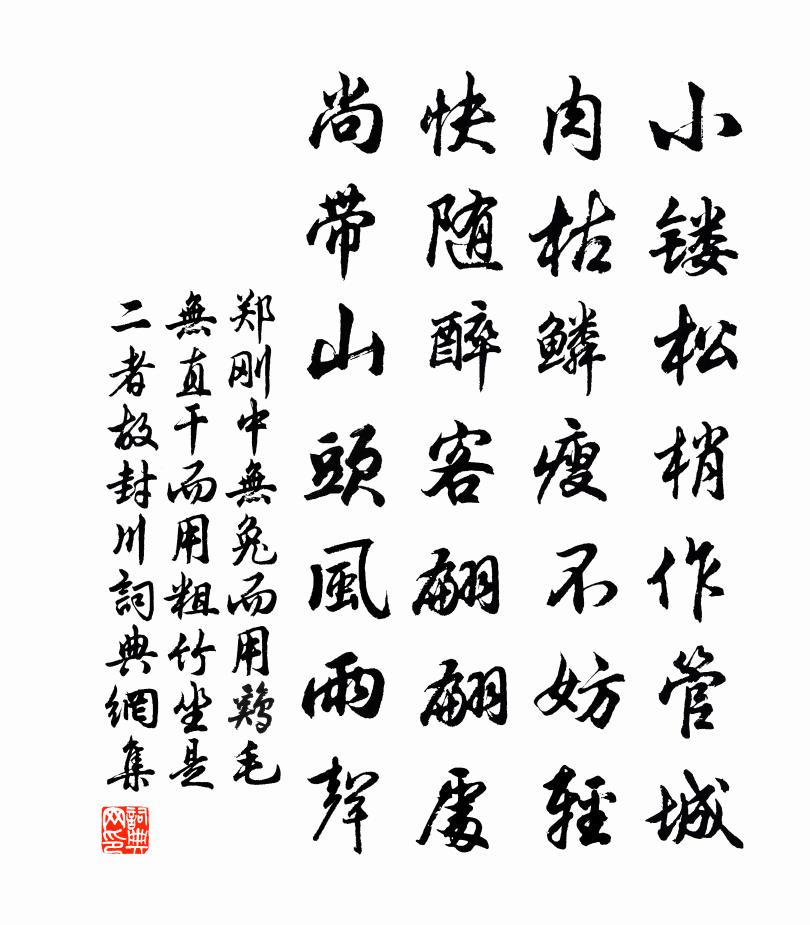 小镂松梢作管城
肉枯鳞瘦不妨轻
快随醉客翩翩處
尚带山頭風雨聲
郑刚中無兔而用鸡毛
無直干而用粗竹坐是
二者故封川詞典網集
詞典网印